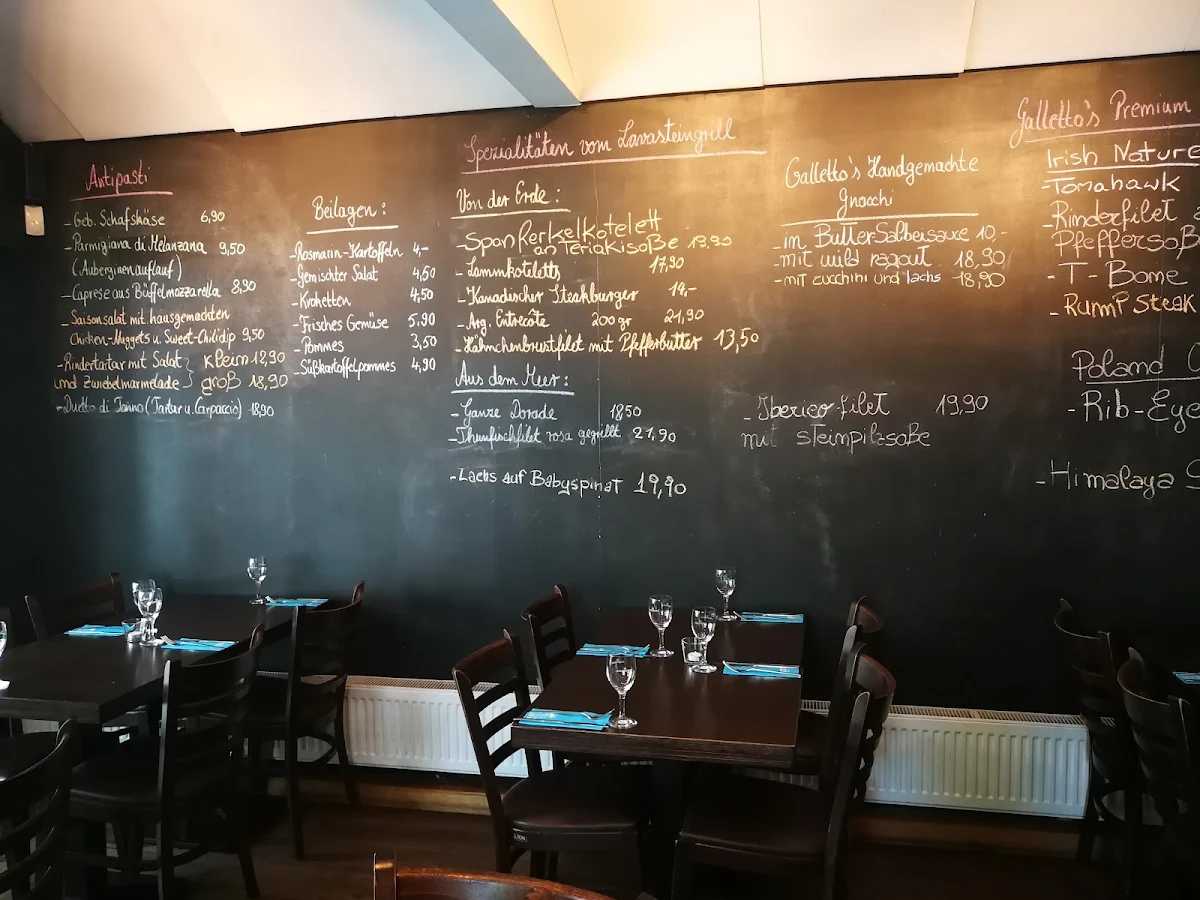 Antipasti
- Geb. Schafskäse 6,90
- Parmigiana di Melanzana 9,50
(Auberginenauflauf)
- Caprese aus Büffelmozzarella 8,90
- Saisonsalat mit hausgemachten
Chicken-Nuggets u. Sweet-Chilidip 9,50
- Rindertartar mit Salat klein 12,90
und Zwiebelmarmelade groß 18,90
- Duetto di (Tartar u. Carpaccio) 18,90
Beilagen:
- Rosmarin-Kartoffeln 4,-
- Gemischter Salat 4,50
- Kroketten 4,50
- Frisches Gemüse 5,90
- Pommes 3,50
- Süßkartoffelpommes 4,90
Spezialitäten vom Lavasteingrill
Von der Erde:
- Spanferkelkotelett
an Teriakisoße 19,90
- Lammkoteletts 17,90
- Kanadischer Steakburger 14,-
- Arg. Entrecôte 200 gr 21,90
- Hähnchenbrustfilet mit Pfefferbutter 13,50
Aus dem Meer:
- Ganze Dorade 1850
- Thunfischfilet rosa gegrillt 21,90
- Lachs auf Babyspinat 19,90
Galletto's Handgemachte
Gnocchi
- in ButterSalbeisauce 10,-
- mit wild ragout 18,90
- mit zucchini und lachs 18,90
- Iberico filet 19,90
mit steinpilzsoße
Galletto's Premium
Irish Nature
- Tomahawk
- Rinderfilet
Pfeffersoß
- T-Bone
- Rump Steak
Poland
- Rib-Eye
- Himalaya